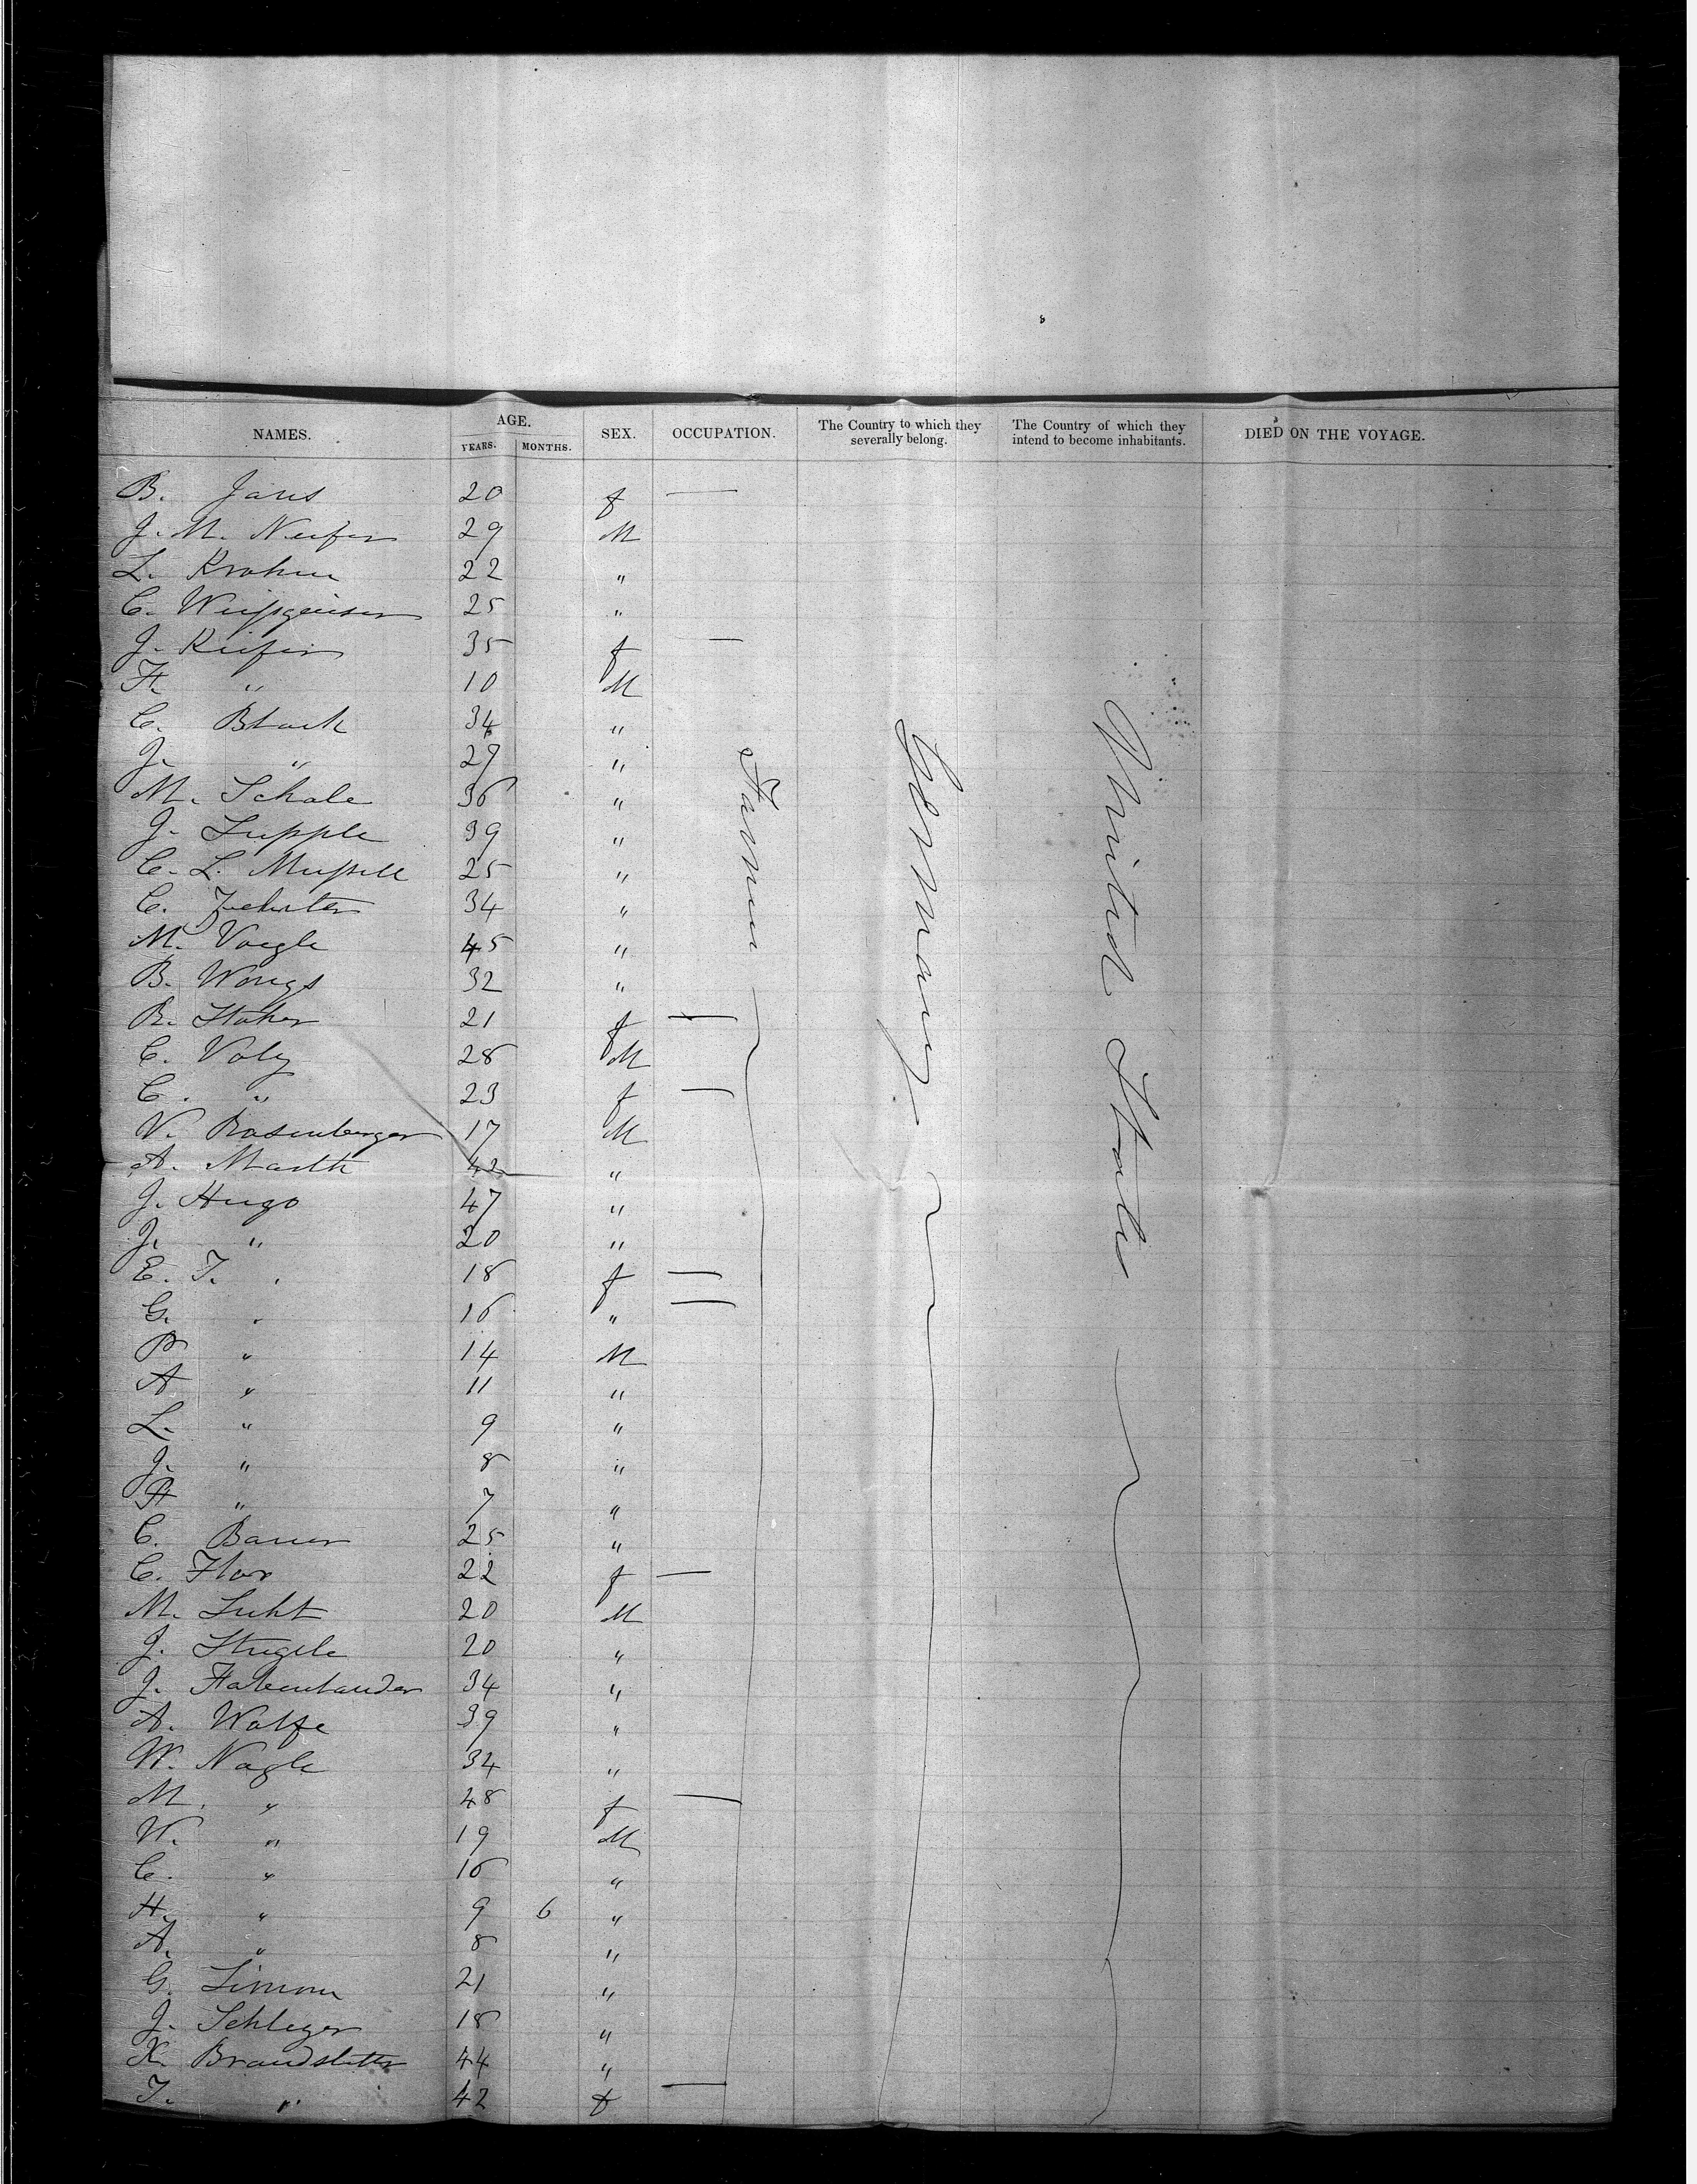 NAMES. AGE. YEARS. MONTHS. SEX. OCCUPATION. The Country to which they severally belong. The Country of which they intend to become inhabitants. DIED ON THE VOYAGE.
B. Jans 20 f —
J. M. Neifer 29 M
L. Krohm 22 "
C. 25 "
J. Kiefer 35 f —
H. " 10 M
C. Black 34 "
J. " 27 "
M. Schale 36 "
J. Supple 39 "
C. L. 25 "
C. 34 "
M. Voegle 45 "
B. Wongs 32 "
R. Stoker 21 f —
C. Voly 28 M
C. " 23 f —
V. Rosenberger 17 M
A. Marth 42 "
J. Hugo 47 "
J. " 20 "
E. T. " 18 f —
G. " 16 " —
P. " 14 M
A " 11 "
L. " 9 "
J. " 8 "
" 7 "
C. Bauer 25 "
C. Flor 22 f —
M. Luht 20 M
J. Stegele 20 "
J. 34 "
A. Wolfe 39 "
W. Nagle 34 "
M. " 48 f —
W. " 19 M
C. " 16 "
H. " 9 6 "
A. " 8 "
G. Simon 21 "
J. Schleger 18 "
K. Brandstetter 44 "
T. " 42 f —
Farmer
Germany
United States